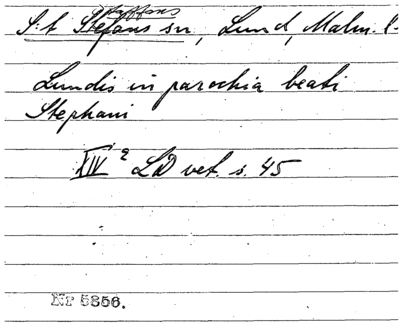 Staffans
S:t Stefans sn, Lund, Malm. l.
Lundis in parochia beati
Stephani
XIV 2 LD vet. s. 45
Nr 5856.